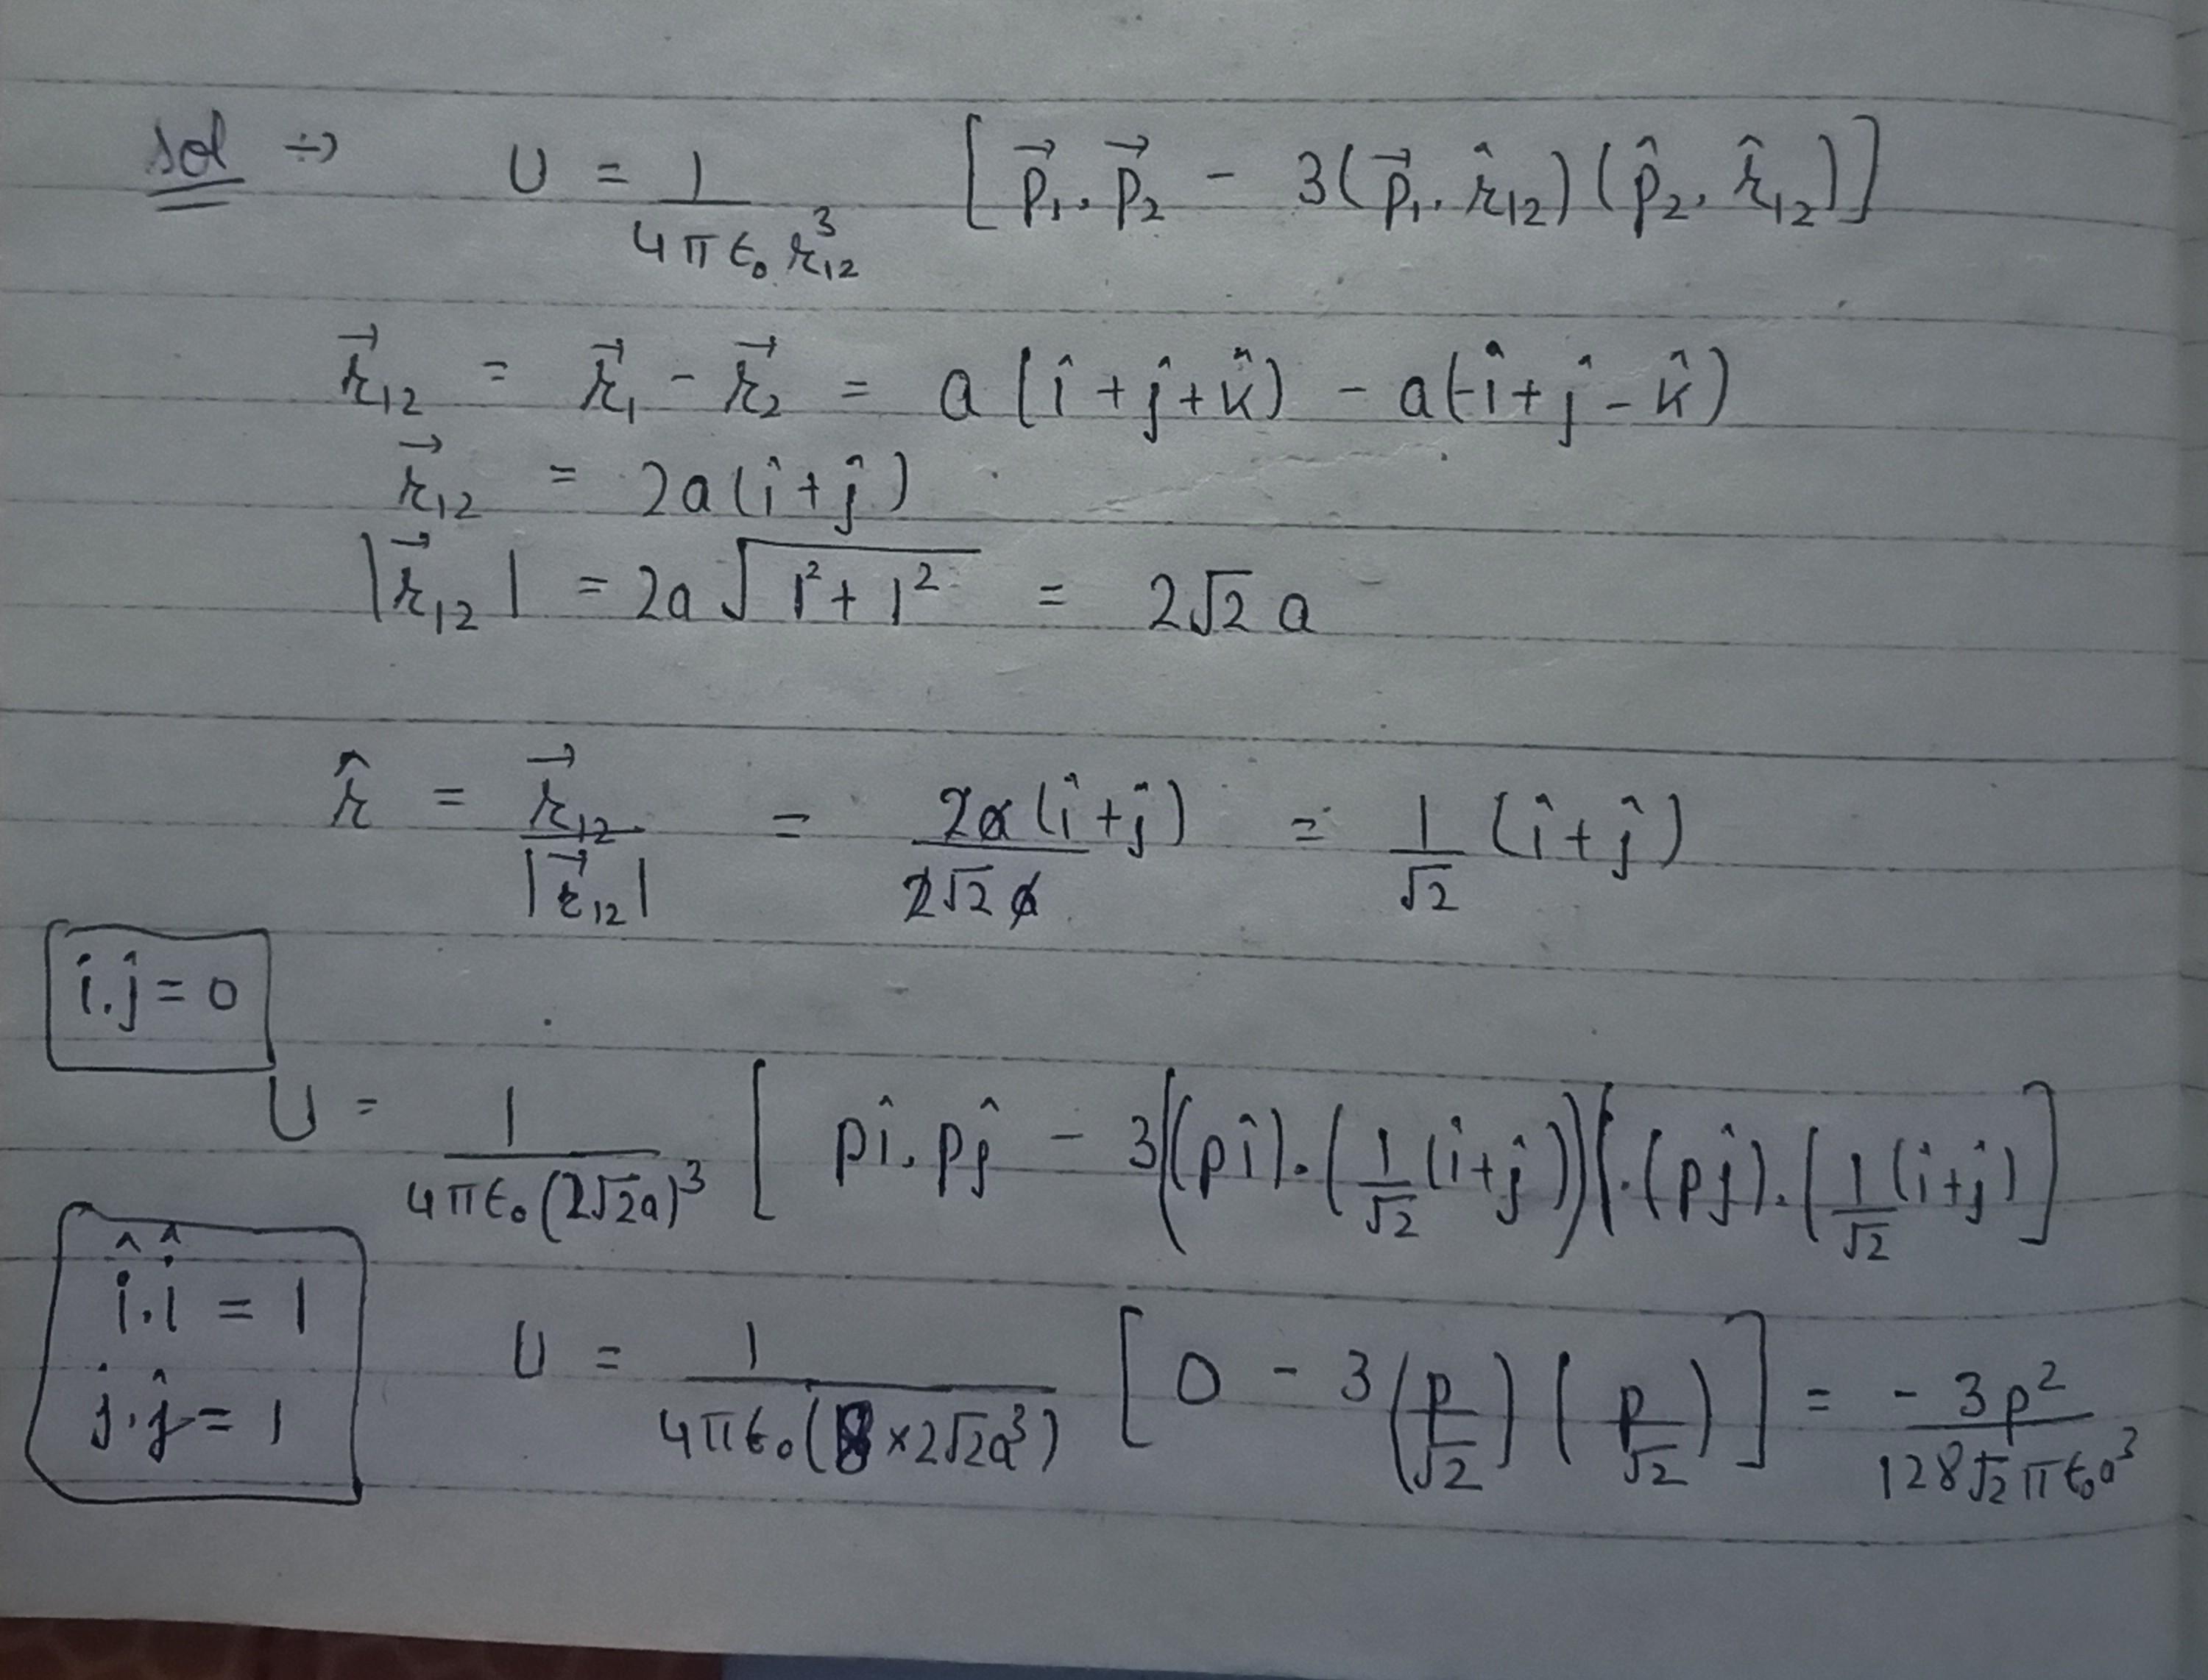 sol ⇒ U = 1/(4πε₀ r₁₂³) [p⃗₁.p⃗₂ - 3(p⃗₁.r̂₁₂)(p̂₂.r̂₁₂)]
r⃗₁₂ = r⃗₁ - r⃗₂ = a(î+ĵ+k̂) - a(-î+ĵ-k̂)
r⃗₁₂ = 2a(î+ĵ)
|r⃗₁₂| = 2a√(1²+1²) = 2√2 a
r̂ = r⃗₁₂/|r⃗₁₂| = 2a(î+ĵ)/(2√2 a) = 1/√2 (î+ĵ)
î.ĵ = 0
U = 1/(4πε₀(2√2a)³) [pî.pĵ - 3((pî).(1/√2(î+ĵ)))(.(pĵ).(1/√2(î+ĵ)]
î.î = 1
ĵ.ĵ = 1
U = 1/(4πε₀(8×2√2a³)) [0 - 3(p/√2)(p/√2)] = -3p²/(128√2πε₀a³)